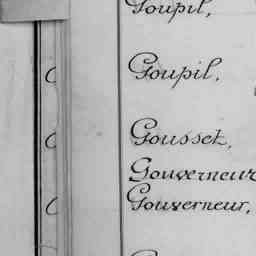 Goupil,
Goupil,
Gousset,
Gouverneur
Gouverneur,